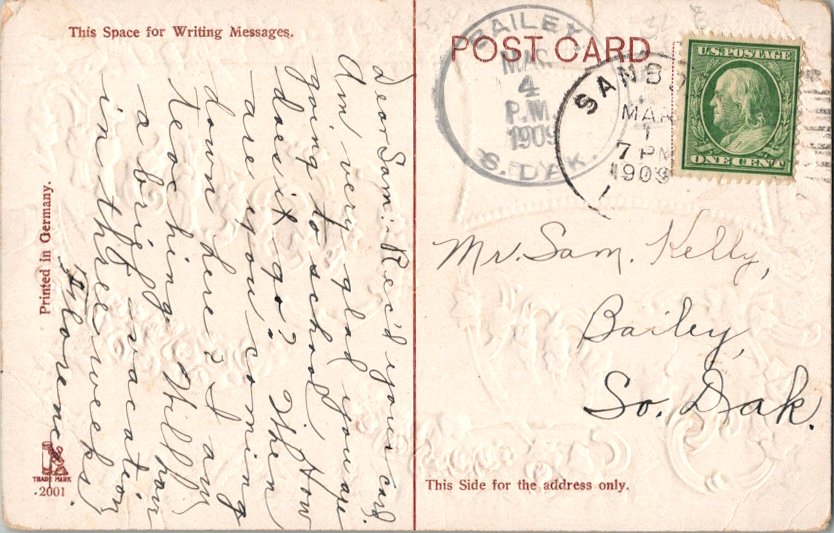 This Space for Writing Messages.
POST CARD
BAILEY
MAR
4
P.M.
1909
S. DAK.
SANBO
MAR
1
7 PM
1909
U.S. POSTAGE
ONE CENT
Dear Sam:- Rec'd your card.
Am very glad you are
going to school. How
does it go? When
are you coming
down here? I am
teaching. Will hav
a brief vacation
in three weeks.
Florence.
Mr. Sam. Kelly,
Bailey,
So. Dak.
Printed in Germany.
TRADE MARK
2001
This Side for the address only.